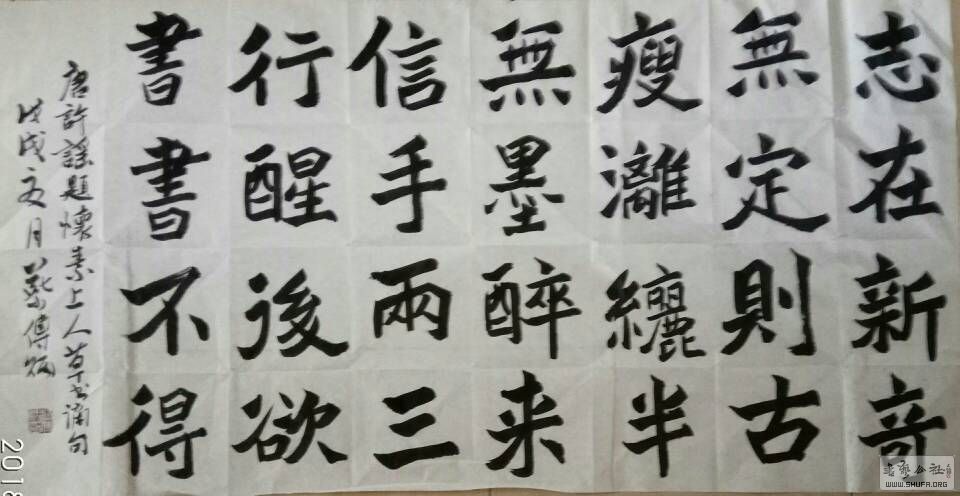 志在新竒
無定則古
瘦灕纚半
無墨醉来
信手兩三
行醒後欲
書書不得
唐許謠題懷素上人草书摘句
戊戌月
2018
书艺公社
WWW.SHUFA.ORG